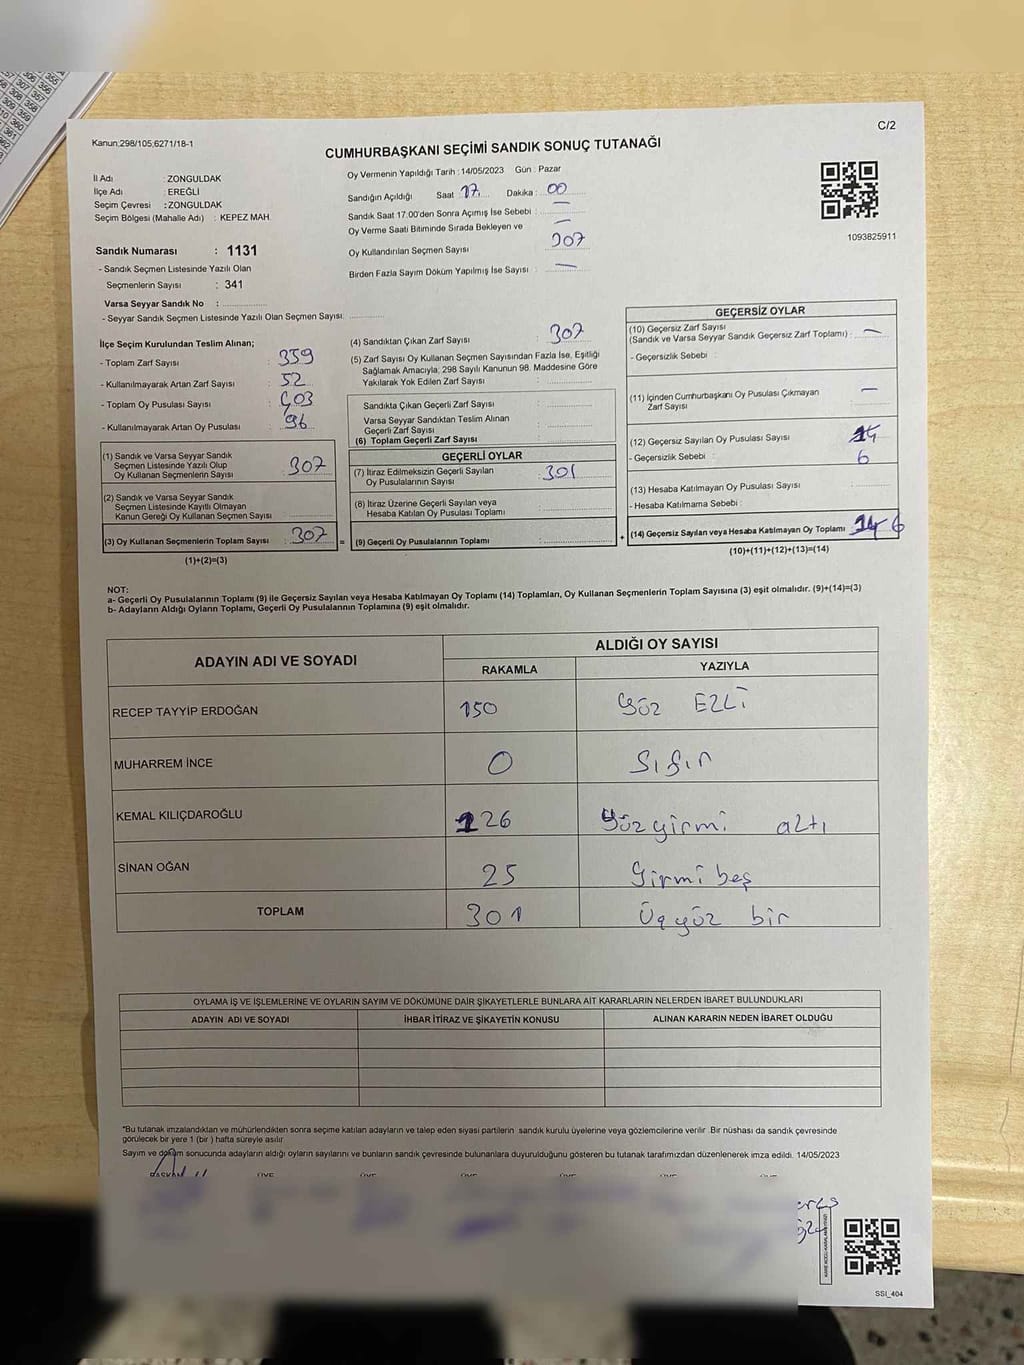 C/2
Kanun;298/105,6271/18-1
CUMHURBAŞKANI SEÇİMİ SANDIK SONUÇ TUTANAĞI
İl Adı : ZONGULDAK
İlçe Adı : EREĞLİ
Seçim Çevresi : ZONGULDAK
Seçim Bölgesi (Mahalle Adı) : KEPEZ MAH.
Sandık Numarası : 1131
- Sandık Seçmen Listesinde Yazılı Olan
Seçmenlerin Sayısı : 341
Varsa Seyyar Sandık No :
- Seyyar Sandık Seçmen Listesinde Yazılı Olan Seçmen Sayısı:
Oy Vermenin Yapıldığı Tarih : 14/05/2023 Gün : Pazar
Sandığın Açıldığı Saat 17. Dakika : 00
Sandık Saat 17.00'den Sonra Açımış İse Sebebi : —
Oy Verme Saati Bitiminde Sırada Bekleyen ve —
Oy Kullandırılan Seçmen Sayısı 307
Birden Fazla Sayım Döküm Yapılmış İse Sayısı : —
1093825911
İlçe Seçim Kurulundan Teslim Alınan;
- Toplam Zarf Sayısı : 359
- Kullanılmayarak Artan Zarf Sayısı : 52
- Toplam Oy Pusulası Sayısı : 403
- Kullanılmayarak Artan Oy Pusulası : 96
(1) Sandık ve Varsa Seyyar Sandık
Seçmen Listesinde Yazılı Olup
Oy Kullanan Seçmenlerin Sayısı : 307
(2) Sandık ve Varsa Seyyar Sandık
Seçmen Listesinde Kayıtlı Olmayan
Kanun Gereği Oy Kullanan Seçmen Sayısı :
(3) Oy Kullanan Seçmenlerin Toplam Sayısı : 307
(1)+(2)=(3)
=
(4) Sandıktan Çıkan Zarf Sayısı : 307
(5) Zarf Sayısı Oy Kullanan Seçmen Sayısından Fazla İse, Eşitliği
Sağlamak Amacıyla; 298 Sayılı Kanunun 98. Maddesine Göre
Yakılarak Yok Edilen Zarf Sayısı :
Sandıkta Çıkan Geçerli Zarf Sayısı :
Varsa Seyyar Sandıktan Teslim Alınan
Geçerli Zarf Sayısı :
(6) Toplam Geçerli Zarf Sayısı :
GEÇERLİ OYLAR
(7) İtiraz Edilmeksizin Geçerli Sayılan
Oy Pusulalarının Sayısı : 301
(8) İtiraz Üzerine Geçerli Sayılan veya
Hesaba Katılan Oy Pusulası Toplamı :
(9) Geçerli Oy Pusulalarının Toplamı :
+
GEÇERSİZ OYLAR
(10) Geçersiz Zarf Sayısı
(Sandık ve Varsa Seyyar Sandık Geçersiz Zarf Toplamı) : —
- Geçersizlik Sebebi :
(11) İçinden Cumhurbaşkanı Oy Pusulası Çıkmayan
Zarf Sayısı : —
(12) Geçersiz Sayılan Oy Pusulası Sayısı : 14
- Geçersizlik Sebebi : 6
(13) Hesaba Katılmayan Oy Pusulası Sayısı :
- Hesaba Katılmama Sebebi :
(14) Geçersiz Sayılan veya Hesaba Katılmayan Oy Toplamı : 14 6
(10)+(11)+(12)+(13)=(14)
NOT:
a- Geçerli Oy Pusulalarının Toplamı (9) ile Geçersiz Sayılan veya Hesaba Katılmayan Oy Toplamı (14) Toplamları, Oy Kullanan Seçmenlerin Toplam Sayısına (3) eşit olmalıdır. (9)+(14)=(3)
b- Adayların Aldığı Oyların Toplamı, Geçerli Oy Pusulalarının Toplamına (9) eşit olmalıdır.
ADAYIN ADI VE SOYADI ALDIĞI OY SAYISI
RAKAMLA YAZIYLA
RECEP TAYYİP ERDOĞAN 150 Yüz EZLİ
MUHARREM İNCE 0 Sıfır
KEMAL KILIÇDAROĞLU 126 Yüzyirmi altı
SİNAN OĞAN 25 Yirmi beş
TOPLAM 301 Üçyüz bir
OYLAMA İŞ VE İŞLEMLERİNE VE OYLARIN SAYIM VE DÖKÜMÜNE DAİR ŞİKAYETLERLE BUNLARA AİT KARARLARIN NELERDEN İBARET BULUNDUKLARI
ADAYIN ADI VE SOYADI İHBAR İTİRAZ VE ŞİKAYETİN KONUSU ALINAN KARARIN NEDEN İBARET OLDUĞU
*Bu tutanak imzalandıktan ve mühürlendikten sonra seçime katılan adayların ve talep eden siyasi partilerin sandık kurulu üyelerine veya gözlemcilerine verilir. Bir nüshası da sandık çevresinde
görülecek bir yere 1 (bir ) hafta süreyle asılır.
Sayım ve döküm sonucunda adayların aldığı oyların sayılarını ve bunların sandık çevresinde bulunanlara duyurulduğunu gösteren bu tutanak tarafımızdan düzenlenerek imza edildi. 14/05/2023
BAŞKAN ÜYE ÜYE ÜYE ÜYE ÜYE ÜYE
SSI_404